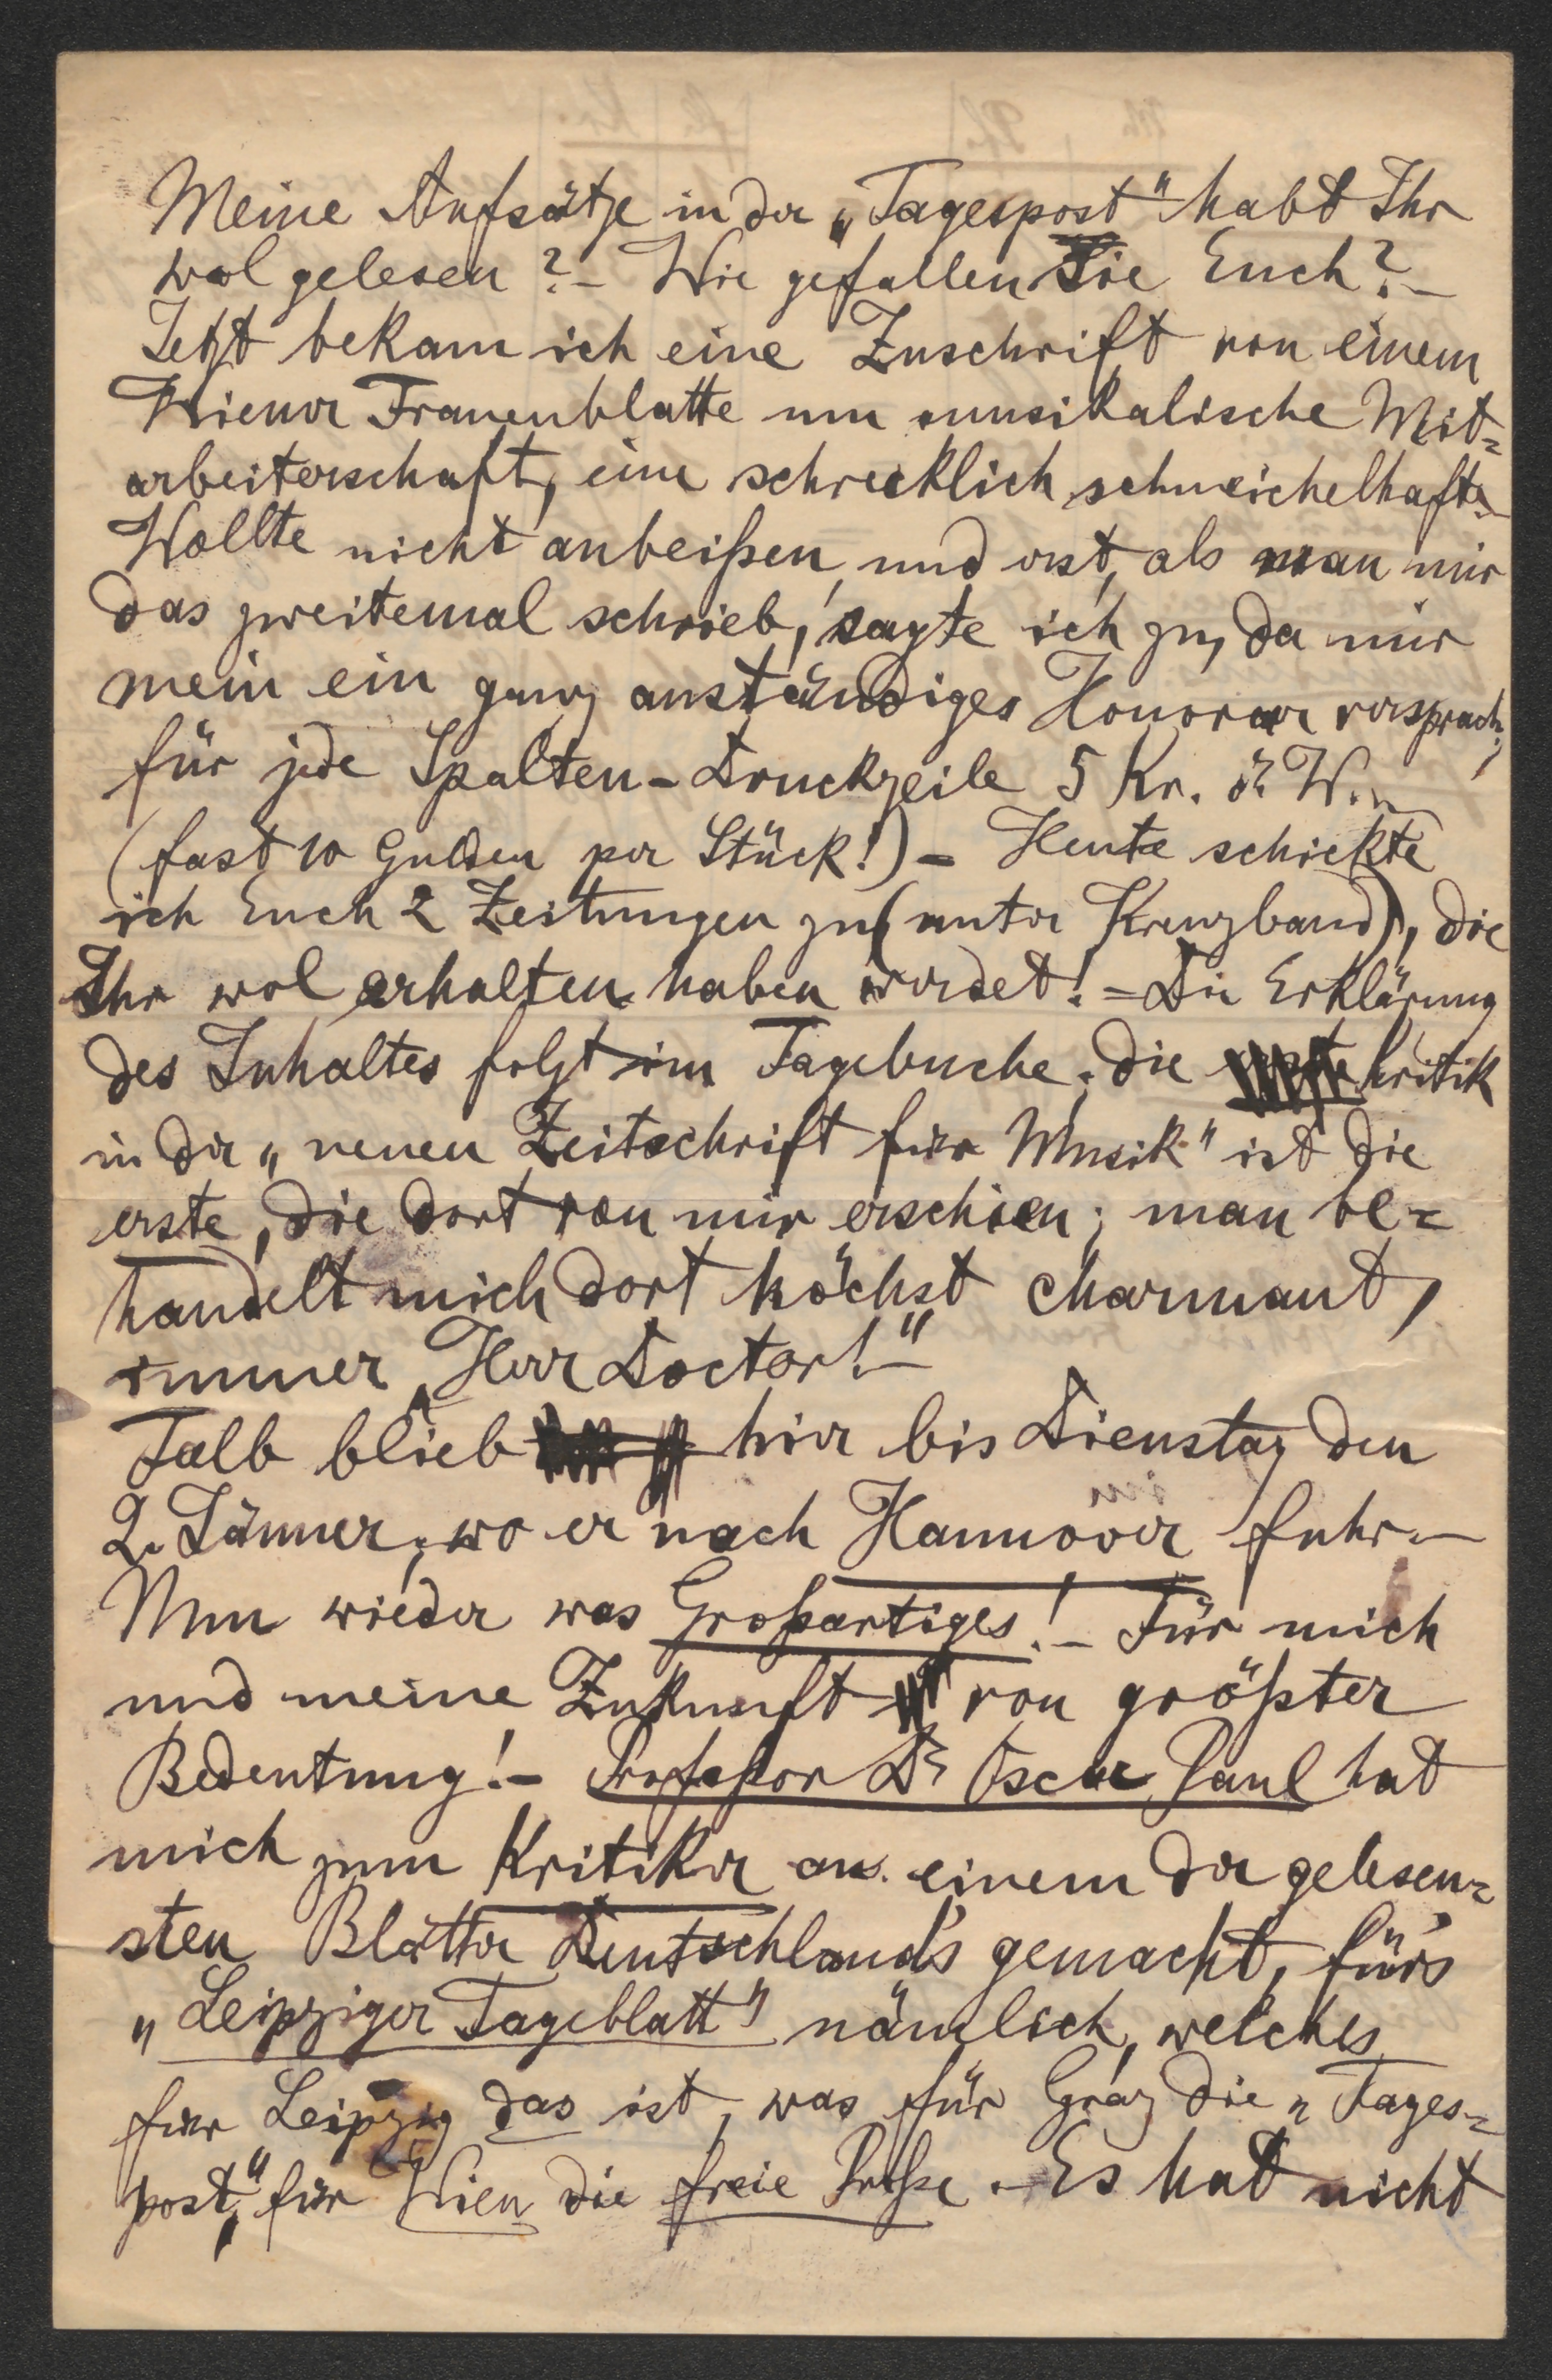 Meine Aufsätze in der „Tagespost" habt Ihr
wol gelesen? – Wie gefallen Sie Euch? –
Jetzt bekam ich eine Zuschrift von einem
Wiener Frauenblatte um musikalische Mit=
arbeiterschaft, eine schrecklich schmeichelhafte. –
Wollte nicht anbeißen, und erst, als man mir
das zweitemal schrieb, sagte ich zu, da mir
mein ein ganz anständiges Honorar versprach;
für jede Spalten-Druckzeile 5 Kr. ö. W. –
(fast 10 Gulden per Stück!) – Heute schickte
ich Euch 2 Zeitungen zu (unter Kreuzband), die
Ihr wol erhalten haben werdet! – Die Erklärung
des Inhaltes folgt im Tagebuche. die Kritik
in der „neuen Zeitschrift für Musik" ist die
erste, die dort von mir erschien; man be=
handelt mich dort höchst charmant,
immer „Herr Doctor! –"
Falb blieb hier bis Dienstag den
2. Jänner, wo er nach Hannover fuhr. –
Nun wieder was Großartiges! – Für mich
und meine Zukunft von größter
Bedeutung! – Professor Dr Oscar Paul hat
mich zum Kritiker an einem der gelesen=
sten Blätter Deutschland's gemacht, für's
„Leipziger Tageblatt" nämlich, welches
für Leipzig das ist, was für Graz die „Tages=
post", für Wien die freie Presse. – Es hat nicht